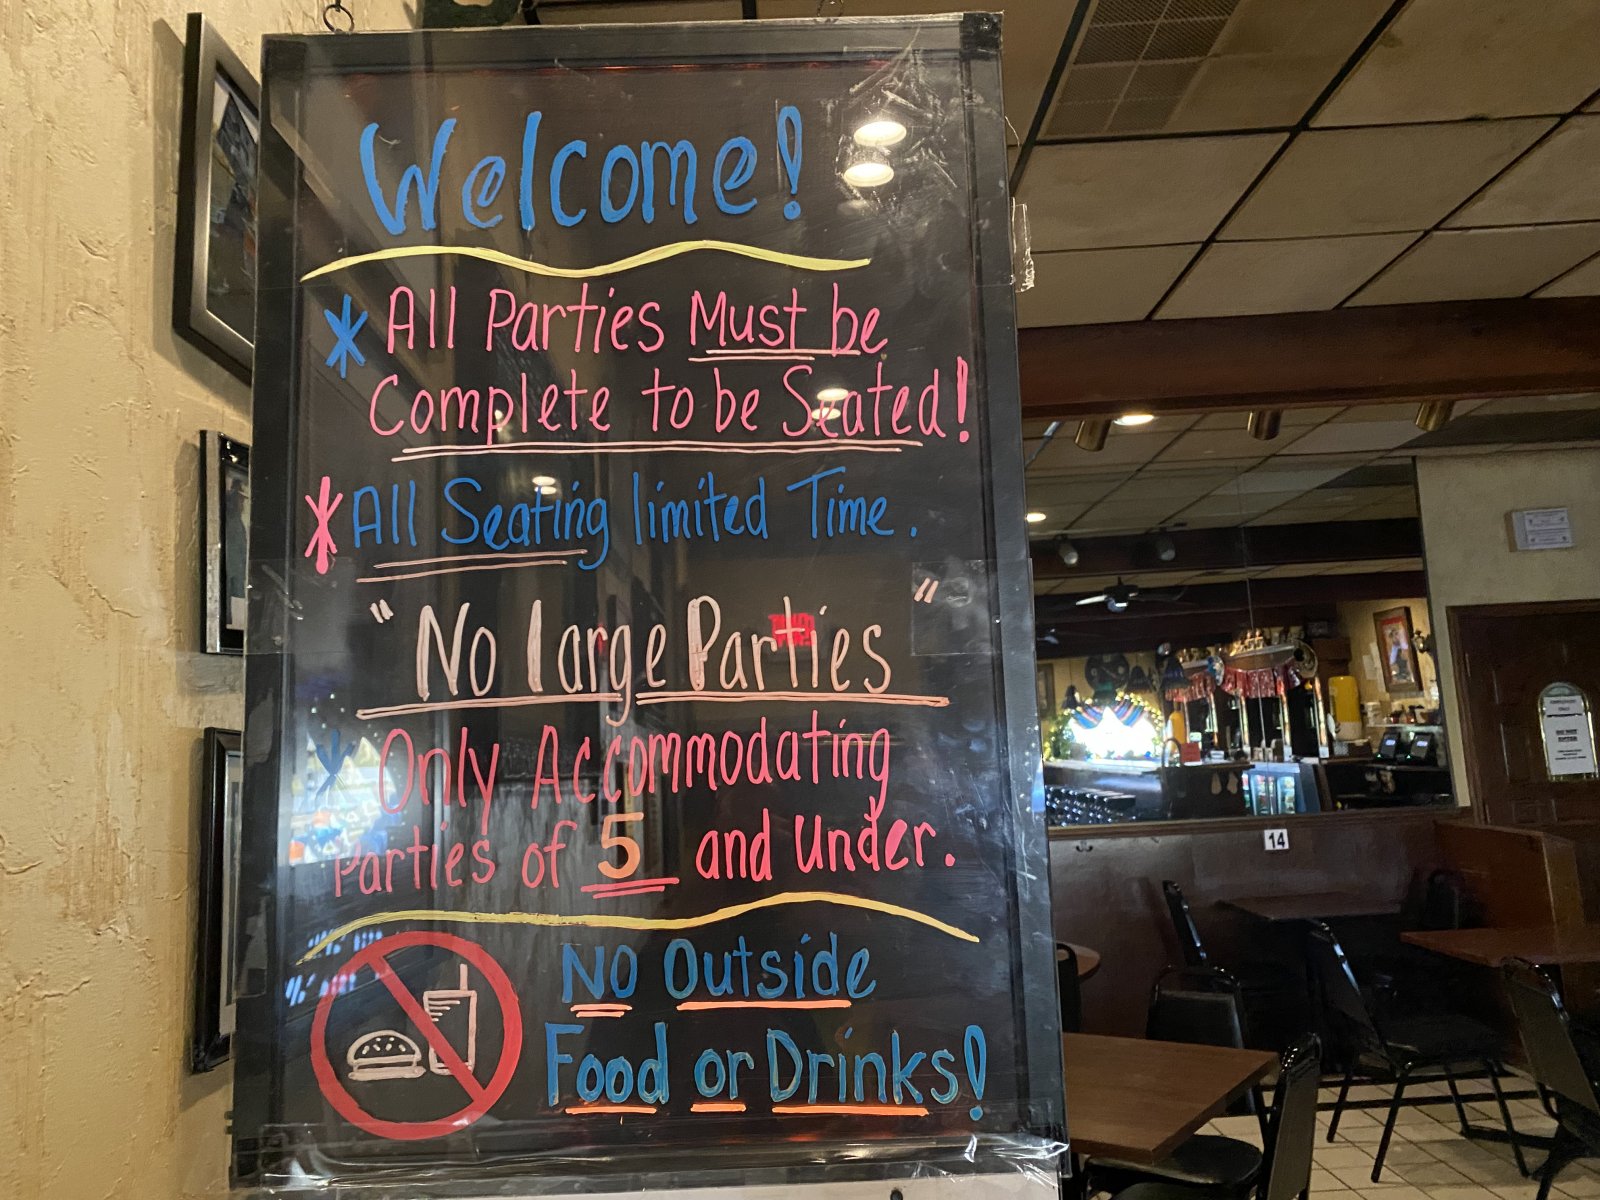 Welcome!
* All Parties Must be
Complete to be Seated!
* All Seating limited Time.
"No large Parties"
* Only Accommodating
Parties of 5 and Under.
No Outside
Food or Drinks!
14
DO NOT
ENTER